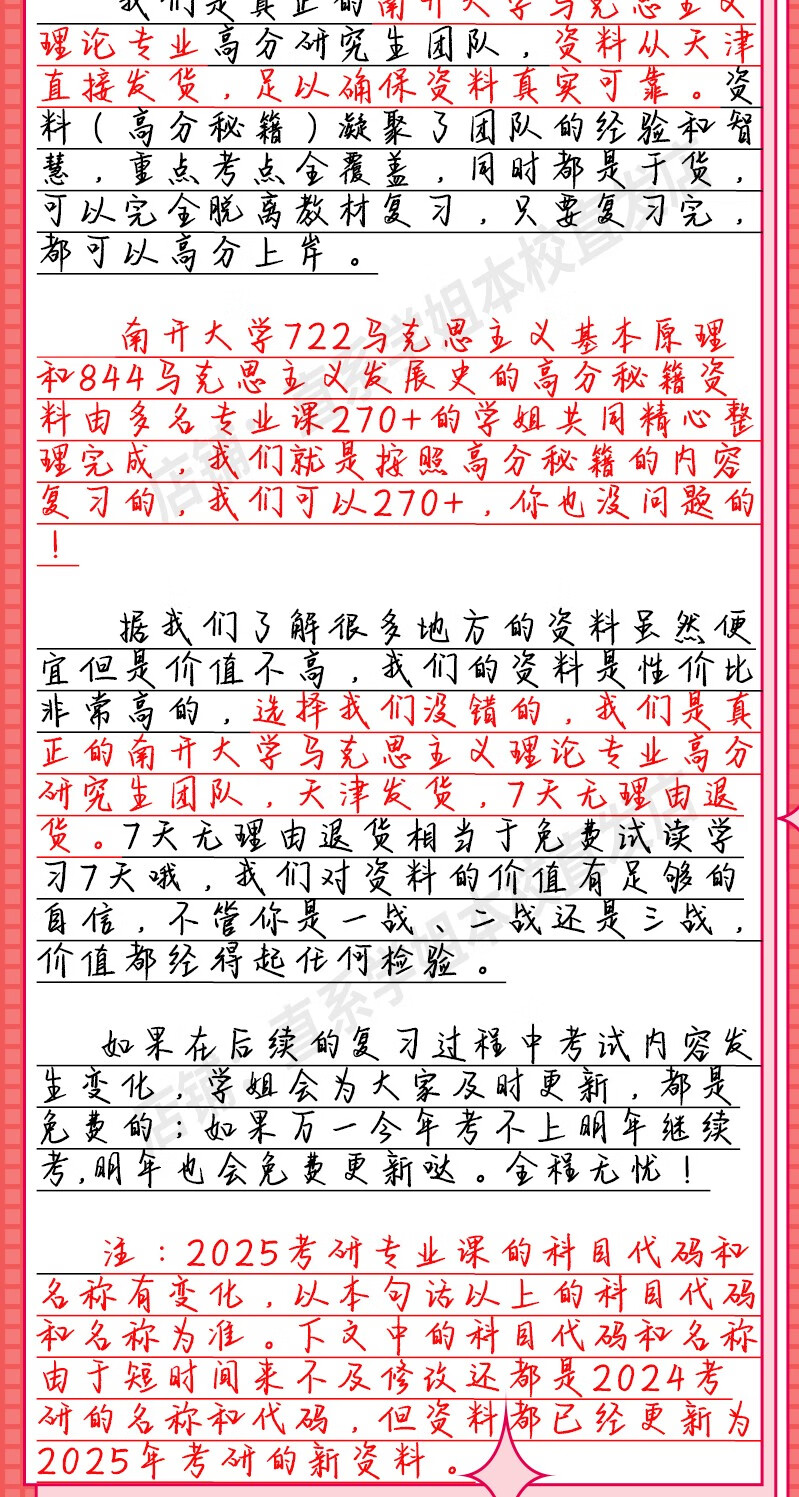 我们是真正的南开大学马克思主义
理论专业高分研究生团队，资料从天津
直接发货，足以确保资料真实可靠。资
料（高分秘籍）凝聚了团队的经验和智
慧，重点考点全覆盖，同时都是干货，
可以完全脱离教材复习，只要复习完，
都可以高分上岸。
南开大学722马克思主义基本原理
和844马克思主义发展史的高分秘籍资
料由多名专业课270+的学姐共同精心整
理完成，我们就是按照高分秘籍的内容
复习的，我们可以270+，你也没问题的
！
据我们了解很多地方的资料虽然便
宜但是价值不高，我们的资料是性价比
非常高的，选择我们没错的，我们是真
正的南开大学马克思主义理论专业高分
研究生团队，天津发货，7天无理由退
货。7天无理由退货相当于免费试读学
习7天哦，我们对资料的价值有足够的
自信，不管你是一战、二战还是三战，
价值都经得起任何检验。
如果在后续的复习过程中考试内容发
生变化，学姐会为大家及时更新，都是
免费的；如果万一今年考不上明年继续
考,明年也会免费更新哒。全程无忧！
注：2025考研专业课的科目代码和
名称有变化，以本句话以上的科目代码
和名称为准。下文中的科目代码和名称
由于短时间来不及修改还都是2024考
研的名称和代码，但资料都已经更新为
2025年考研的新资料。
店铺：直系学姐本校直发店
店铺：直系学姐本校直发店